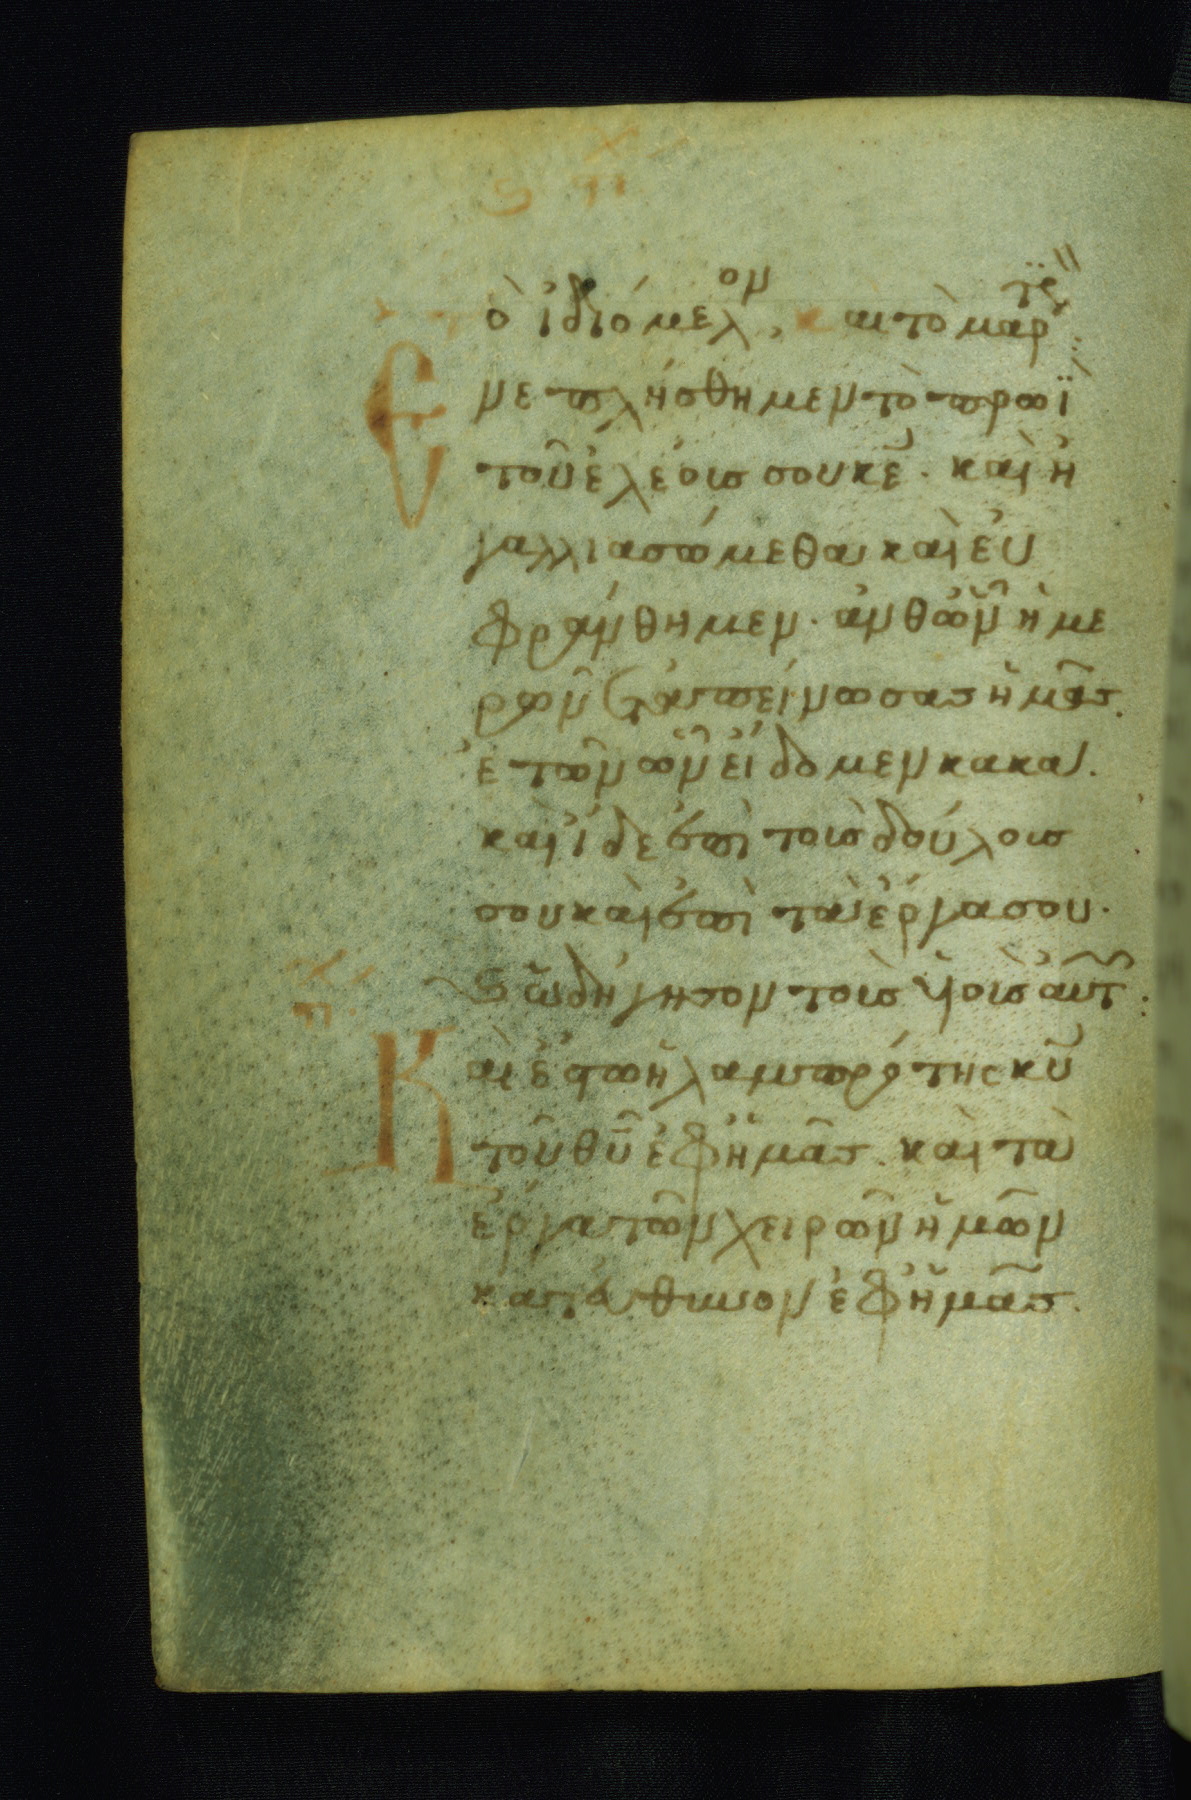 τὸ ἰδιόμελον, καὶ τὸ μαρτ
Ενεπλήσθημεν τὸ πρωῒ
τοῦ ἐλέους σου κε̄. καὶ ἠ
γαλλιασώμεθα καὶ εὐ
φράνθημεν. ἀνθὧν ἡμε
ρῶν ἐταπείνωσας ἡμᾶς.
ἐτῶν ὧν εἴδομεν κακα.
καὶ ἴδε ἐπὶ τοὺς δούλους
σου καὶ ἐπὶ τὰ ἔργα σου.
ὁδήγησον τοὺς ὑιοὺς αὐτ:
Και ἔστω ἡ λαμπρότης κῡ
τοῦ θῡ ἐφἡμᾶς. καὶ τὰ
ἔργα τῶν χειρῶν ἡμῶν
κατεύθυνον ἐφἡμᾶς.